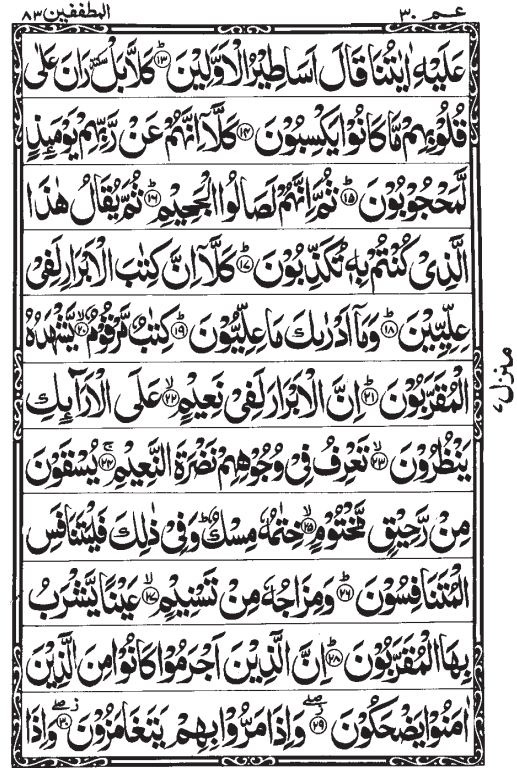 المطففين ٨٣
عم ٣٠
عَلَيْهِ اٰيٰتُنَا قَالَ اَسَاطِيْرُ الْاَوَّلِيْنَ ؕ﴿۱۳﴾ كَلَّا بَلْ سكتة رَانَ عَلٰى
قُلُوْبِهِمْ مَّا كَانُوْا يَكْسِبُوْنَ ﴿۱۴﴾ كَلَّاۤ اِنَّهُمْ عَنْ رَّبِّهِمْ يَوْمَئِذٍ
لَّمَحْجُوْبُوْنَ ؕ﴿۱۵﴾ ثُمَّ اِنَّهُمْ لَصَالُوا الْجَحِيْمِ ؕ﴿۱۶﴾ ثُمَّ يُقَالُ هٰذَا
الَّذِىْ كُنْتُمْ بِهٖ تُكَذِّبُوْنَ ؕ﴿۱۷﴾ كَلَّاۤ اِنَّ كِتٰبَ الْاَبْرَارِ لَفِىْ
عِلِّيِّيْنَ ؕ﴿۱۸﴾ وَمَاۤ اَدْرٰىكَ مَا عِلِّيُّوْنَ ؕ﴿۱۹﴾ كِتٰبٌ مَّرْقُوْمٌ ۙ﴿۲۰﴾ يَّشْهَدُهُ
الْمُقَرَّبُوْنَ ؕ﴿۲۱﴾ اِنَّ الْاَبْرَارَ لَفِىْ نَعِيْمٍ ۙ﴿۲۲﴾ عَلَى الْاَرَآئِكِ
يَنْظُرُوْنَ ۙ﴿۲۳﴾ تَعْرِفُ فِىْ وُجُوْهِهِمْ نَضْرَةَ النَّعِيْمِ ۚ﴿۲۴﴾ يُسْقَوْنَ
مِنْ رَّحِيْقٍ مَّخْتُوْمٍ ۙ﴿۲۵﴾ خِتٰمُهٗ مِسْكٌ ؕ وَفِىْ ذٰلِكَ فَلْيَتَنَافَسِ
الْمُتَنَافِسُوْنَ ؕ﴿۲۶﴾ وَمِزَاجُهٗ مِنْ تَسْنِيْمٍ ۙ﴿۲۷﴾ عَيْنًا يَّشْرَبُ
بِهَا الْمُقَرَّبُوْنَ ؕ﴿۲۸﴾ اِنَّ الَّذِيْنَ اَجْرَمُوْا كَانُوْا مِنَ الَّذِيْنَ
اٰمَنُوْا يَضْحَكُوْنَ ۖ﴿۲۹﴾ وَاِذَا مَرُّوْا بِهِمْ يَتَغَامَزُوْنَ ۖ﴿۳۰﴾ وَاِذَا
منزل ۷